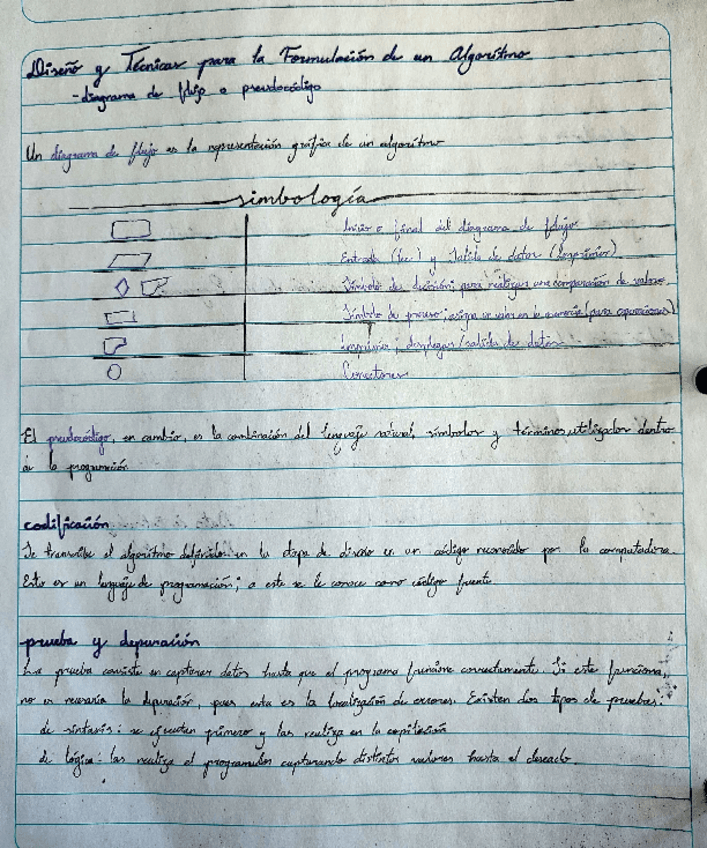 Diseño y Técnicas para la Formulación de un Algoritmo
-diagrama de flujo o pseudocódigo
Un diagrama de flujo es la representación gráfica de un algoritmo
simbología
Inicio o final del diagrama de flujo
Entrada (leer) y Salida de datos (Imprimir)
Símbolo de decisión; para realizar una comparación de valores.
Símbolo de proceso; asigna un valor en la memoria (para operaciones)
imprimir; desplegar/salida de datos
Conectores
El pseudocódigo, en cambio, es la combinación del lenguaje natural, símbolos y términos utilizados dentro
de la programación
codificación
Se transcribe el algoritmo definido en la etapa de diseño en un código reconocido por la computadora.
Esto es un lenguaje de programación; a este se le conoce como código fuente
prueba y depuración
La prueba consiste en capturar datos hasta que el programa funcione correctamente. Si este funciona,
no es necesaria la depuración, pues esta es la localización de errores. Existen dos tipos de pruebas:
de sintaxis: se ejecutan primero y las realiza en la
de lógica: las realiza el capturando distintos valores hasta el deseado.